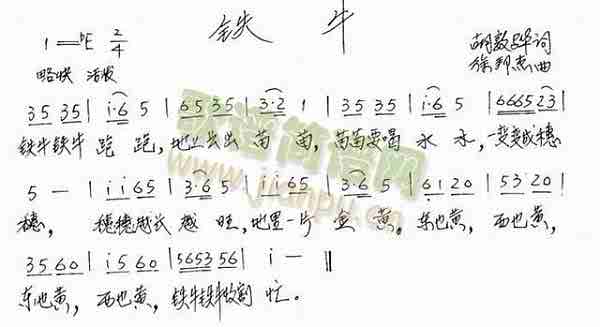 铁牛
1=♭E 2/4
胡敦骅词
略快 活泼
徐邦杰曲
35 35 | i·6 5 | 65 35 | 3·2 1 | 35 35 | i·6 5 | 6665 23 |
铁牛铁牛 跑 跑，地上出出 苗 苗，苗苗要喝 水 水，一变变成穗
5 — | i i 65 | 3·6 5 | i i 65 | 3·6 5 | 61 20 | 53 20 |
穗， 穗穗越长 越 旺，地里一片 金 黄。东也黄，西也黄，
35 60 | i 5 60 | 5653 56 | i — ‖
东也黄，西也黄，铁牛铁牛收割 忙。